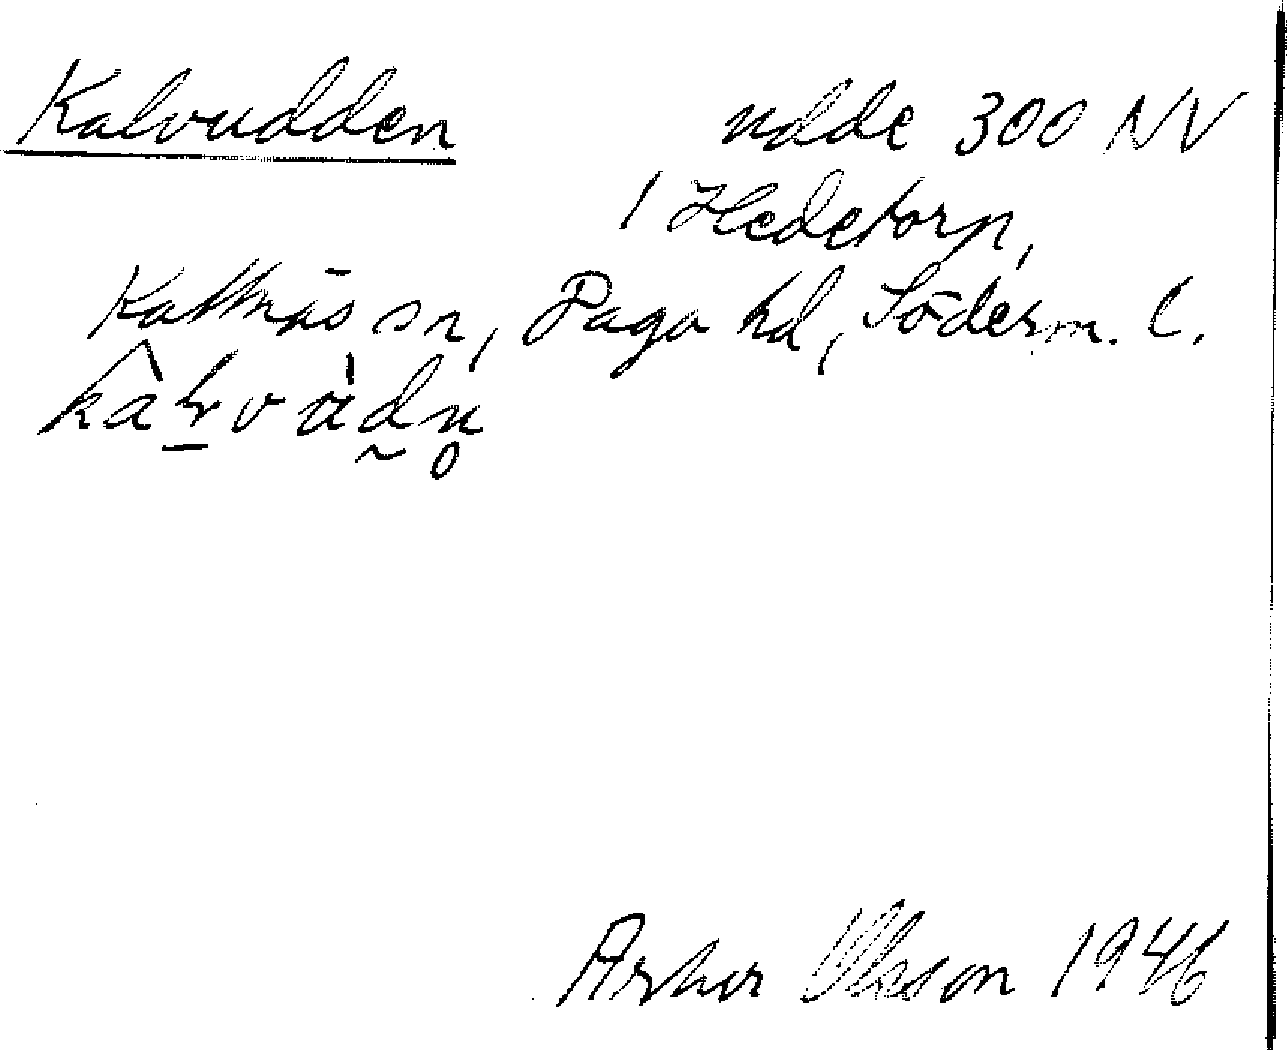 Kalvudden
udde 300 NV
/ Hedetorp,
Kattnäs sn, Daga hd, Söderm. l.
Arthur Olsson 1946